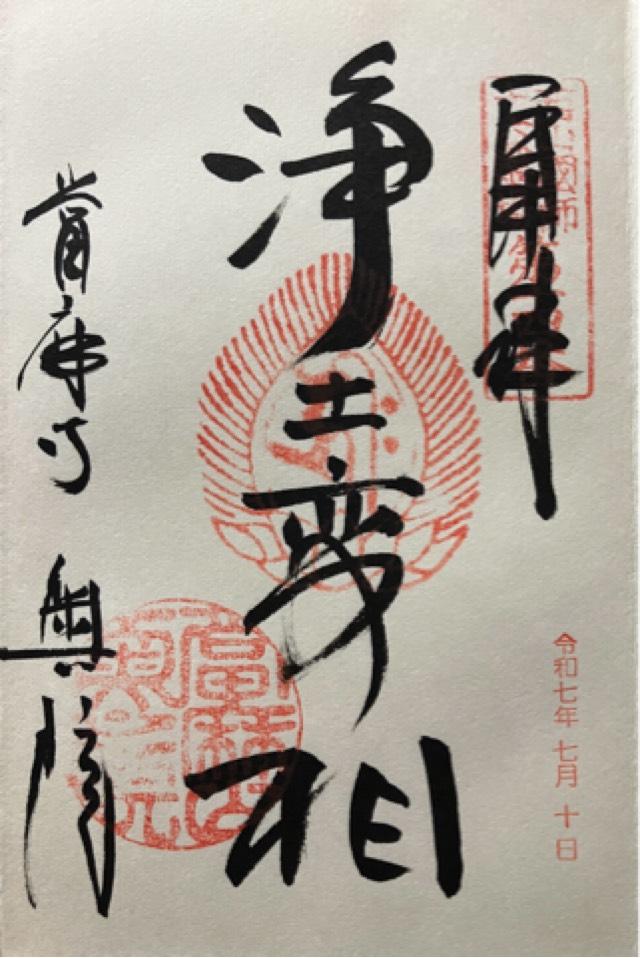 奉拝
令和七年 七月 十日
浄土変相
當麻寺 奥院